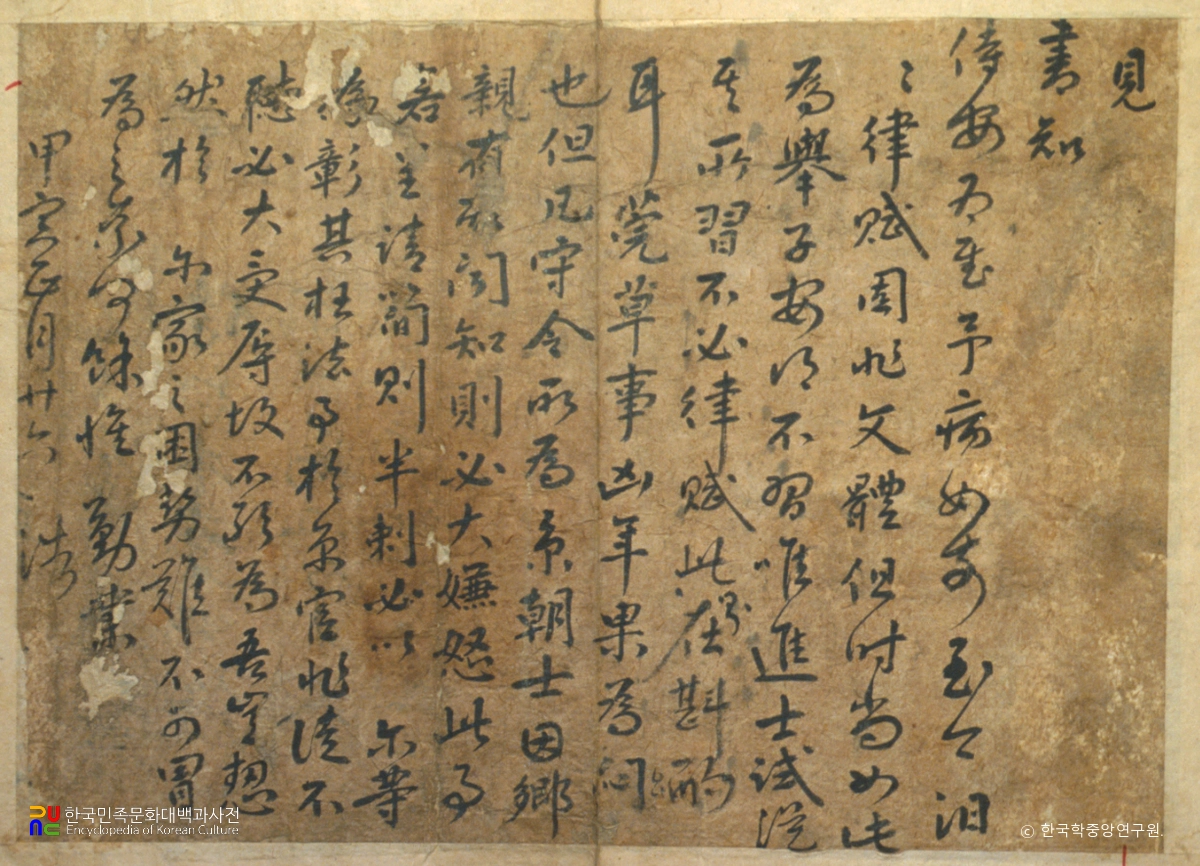 見
書知
侍安為慰予病如前至今汨
〻律賦固非文體但时尚如此
為擧子安得不習唯進士試從
其所習不必律賦此在斟酌
耳莞草事凶年果為悶
也但凡守令所為京朝士因鄉
親有所聞知則必大嫌怒此事
若 請簡則半刺必以 尔等
為彰其枉法事於京官非徒不
聽必大受辱故不能為吾豈恝
然於 尔家之困勢難不可冒
為之奈何餘惟 勤業
甲寅正月廿六
한국민족문화대백과사전
Encyclopedia of Korean Culture
© 한국학중앙연구원.